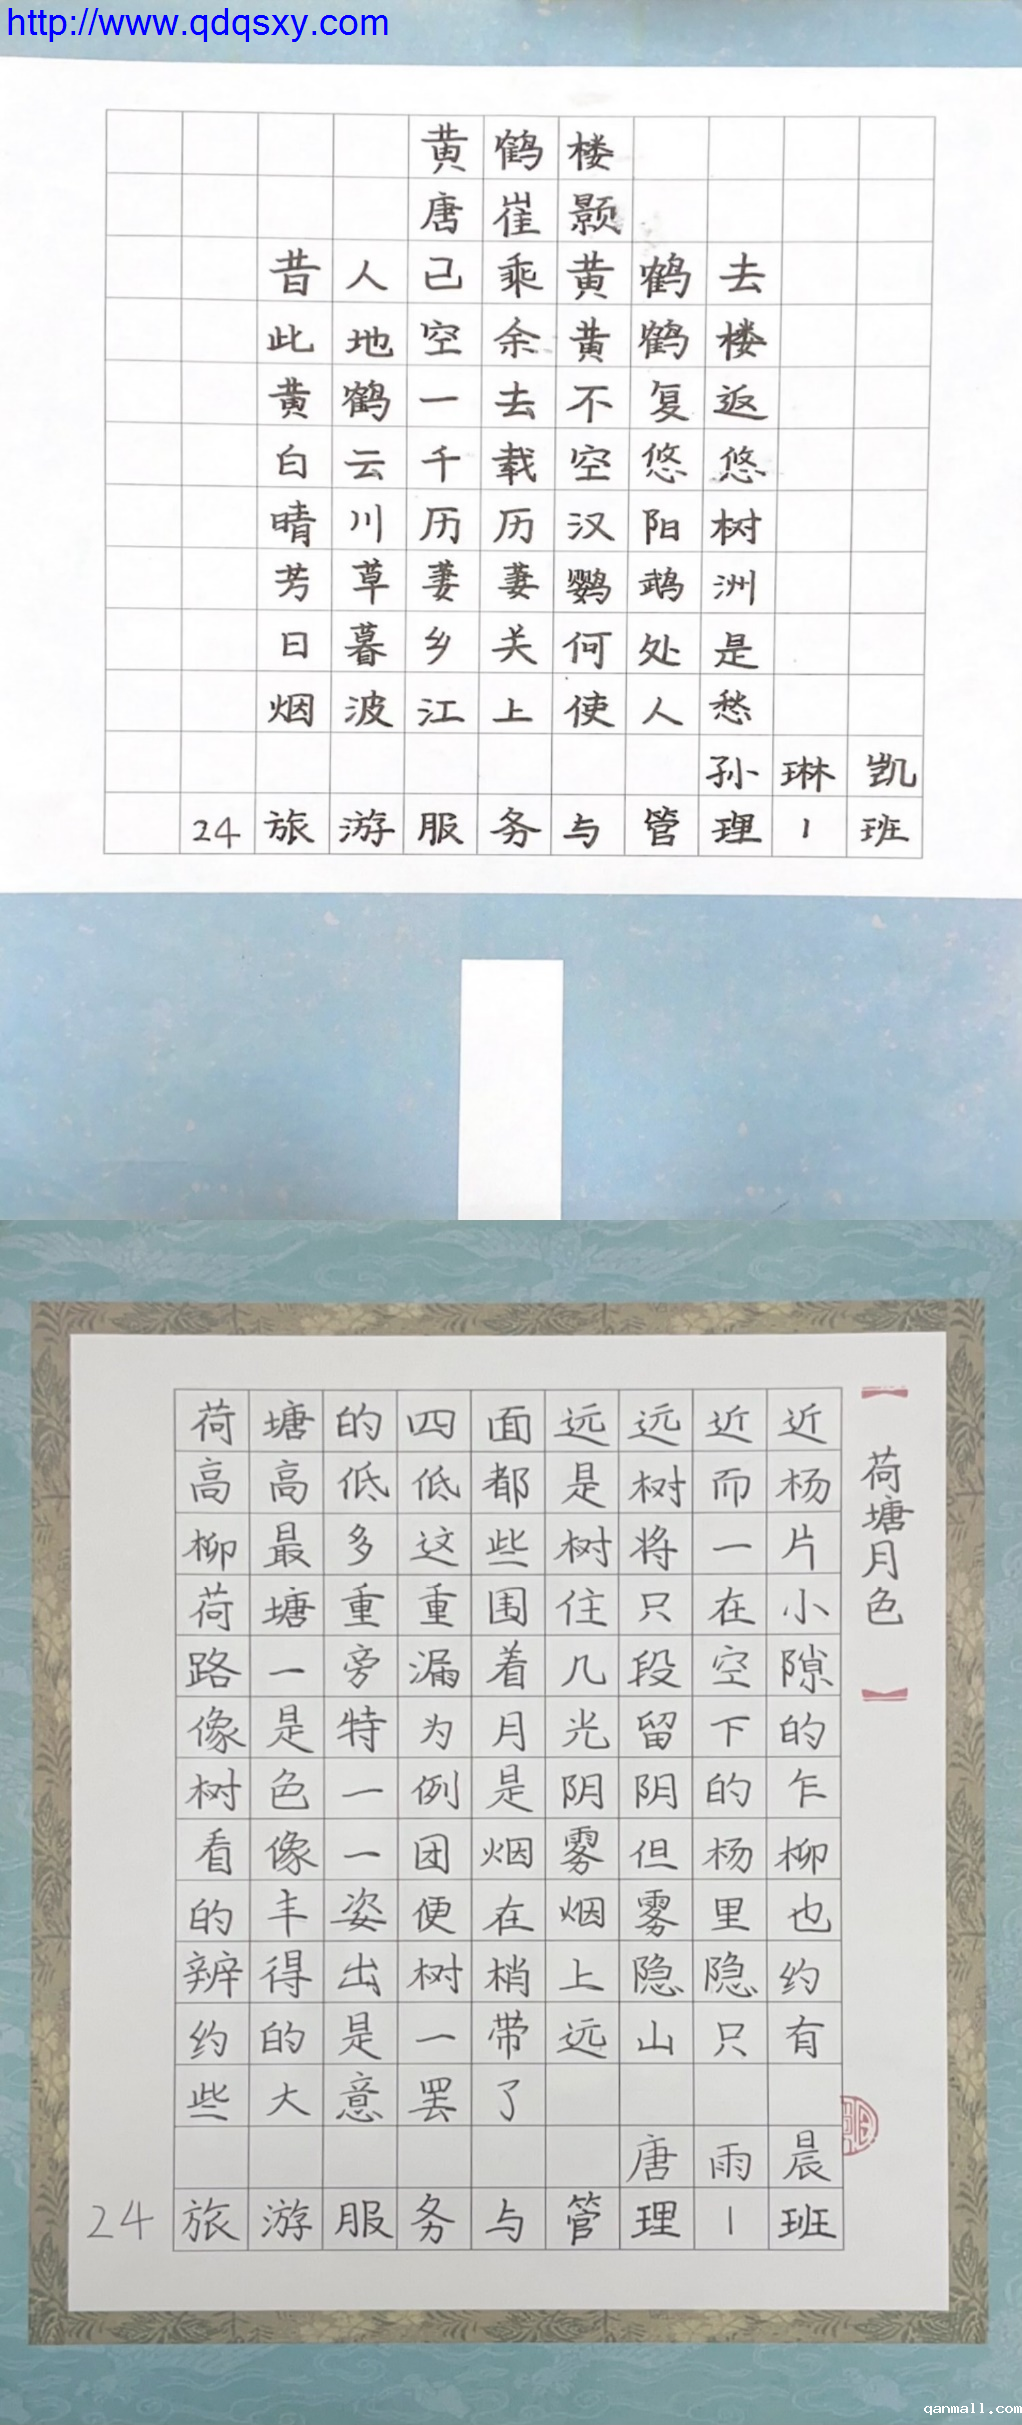 http://www.qdqsxy.com
黄鹤楼
唐崔颢
昔人已乘黄鹤去
此地空余黄鹤楼
黄鹤一去不复返
白云千载空悠悠
晴川历历汉阳树
芳草萋萋鹦鹉洲
日暮乡关何处是
烟波江上使人愁
孙琳凯
24旅游服务与管理1班
【荷塘月色】
荷塘的四面远远近近
高高低低都是树而杨
柳最多这些树将一片
荷塘重重围住只在小
路一旁漏着几段空隙
像是特为月光留下的
树色一例是阴阴的乍
看像一团烟雾但杨柳
的丰姿便在烟雾里也
辨得出树梢上隐隐约
约的是一带远山只有
些大意罢了
唐雨晨
24旅游服务与管理1班
qanmall.com